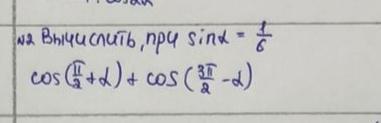 №2 Вычислить, при sinα = 1/6
cos(π/2 + α) + cos(3π/2 - α)